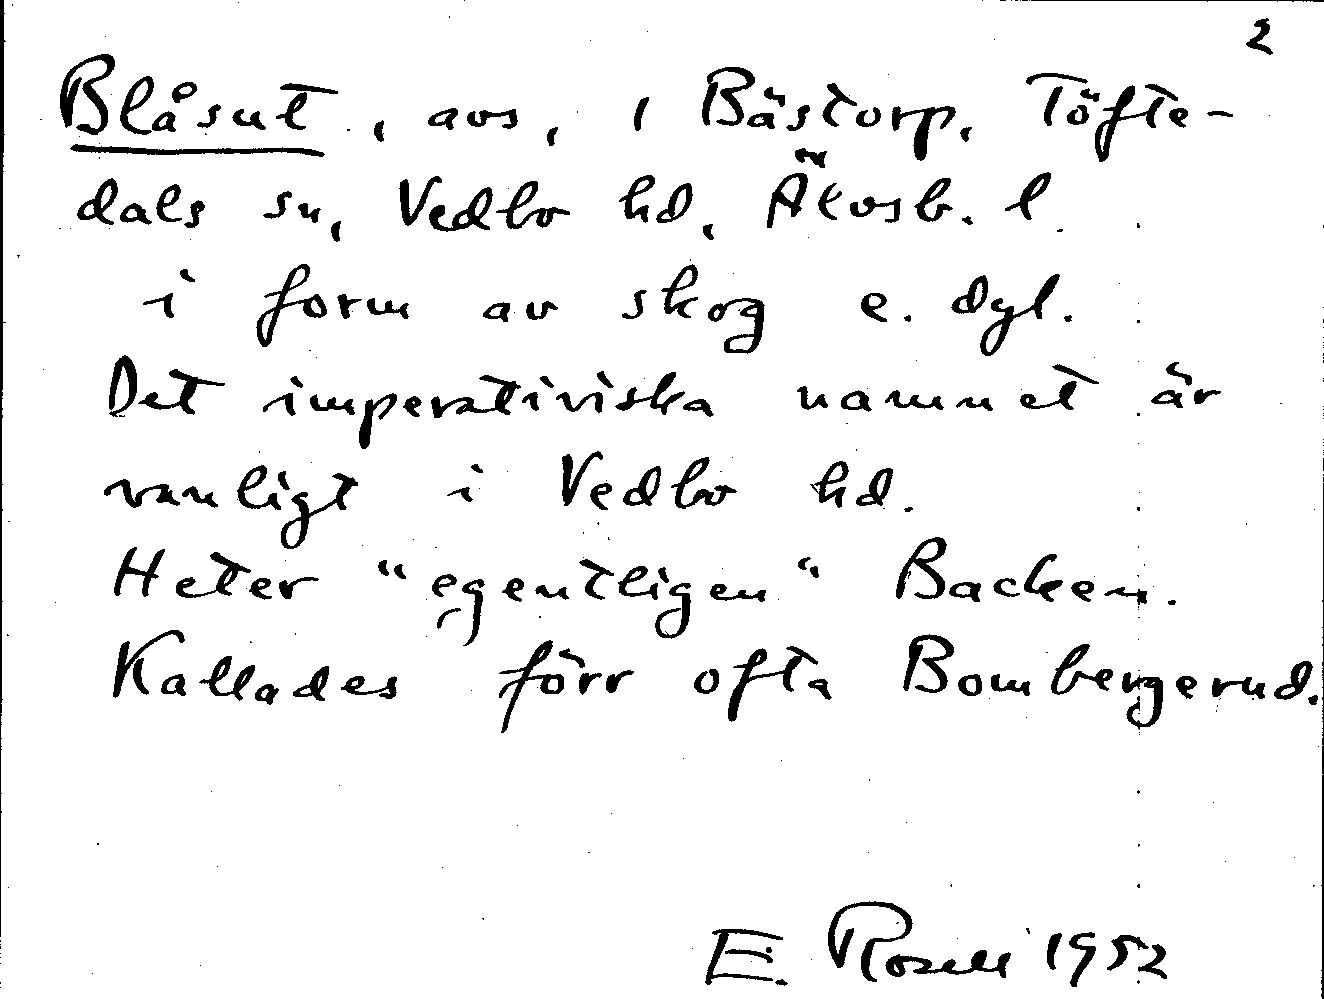 2
Blåsut, avs, i Bästorp, Töfte-
dals sn, Vedbo hd, Älvsb. l.
i form av skog e. dyl.
Det imperativiska namnet är
vanligt i Vedbo hd.
Heter "egentligen" Backen.
Kallades förr ofta Bombergerud.
E. Rosell 1952